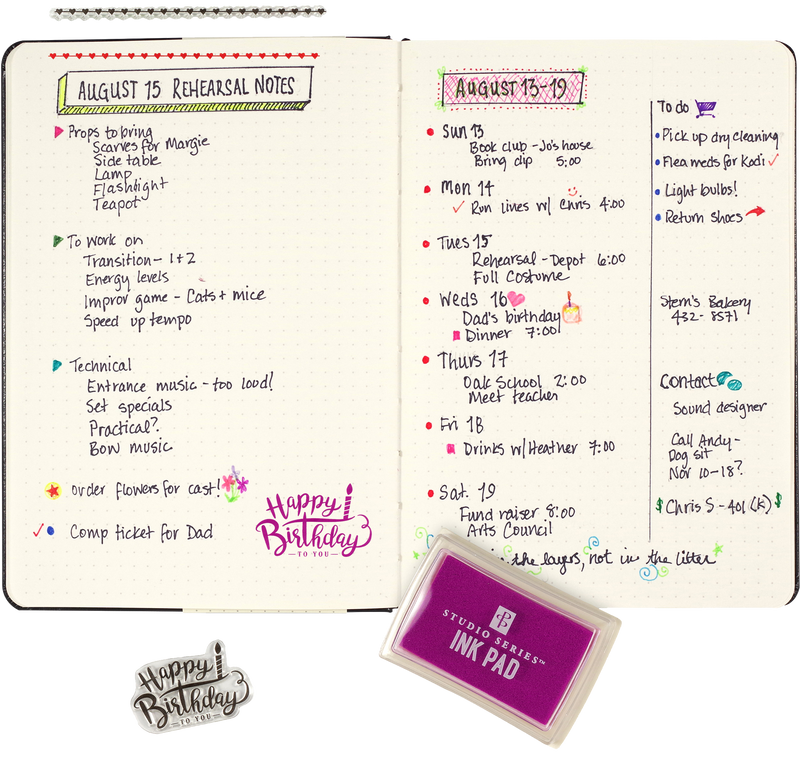 AUGUST 15 REHEARSAL NOTES
Props to bring
Scarves for Margie
Side table
Lamp
Flashlight
Teapot
To work on
Transition - 1+2
Energy levels
Improv game - Cats + mice
Speed up tempo
Technical
Entrance music - too loud!
Set specials
Practical?
Bow music
order flowers for cast!
Comp ticket for Dad
Happy
Birthday
- TO YOU -
AUGUST 13-19
Sun 13
Book club - Jo's house
Bring dip 5:00
Mon 14
Run lines w/ Chris 4:00
Tues 15
Rehearsal - Depot 6:00
Full Costume
Weds 16
Dad's birthday
Dinner 7:00
Thurs 17
Oak School 2:00
Meet teacher
Fri 18
Drinks w/ Heather 7:00
Sat. 19
Fund raiser 8:00
Arts Council
the layers, not in the litter
To do
Pick up dry cleaning
Flea meds for Kodi
Light bulbs!
Return shoes
Stern's Bakery
432-8571
Contact
Sound designer
Call Andy-
Dog sit
Nov 10-18?
$ Chris S - 401 (K) $
STUDIO SERIES™
INK PAD
Happy
Birthday
- TO YOU -